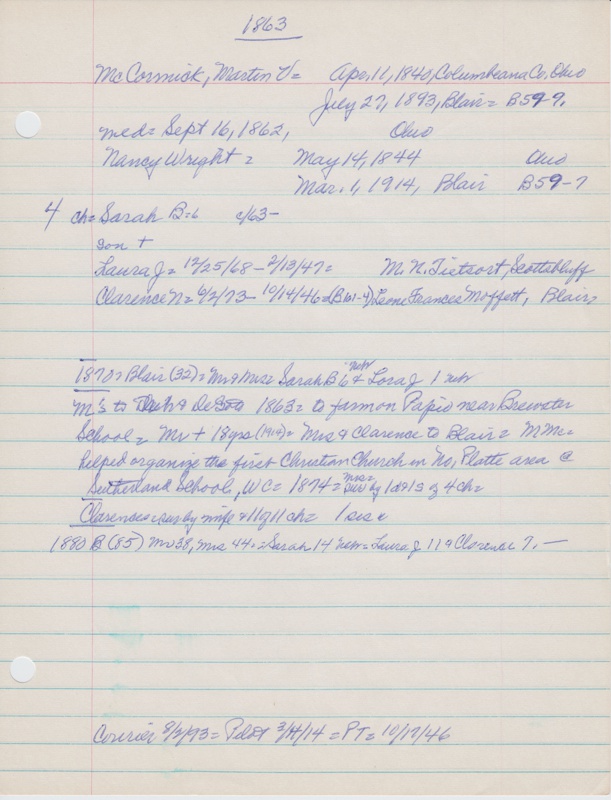 1863
McCormick, Martin V = Apr. 11, 1840, Columbeana Co, Ohio
July 27, 1893, Blair = B59-7.
med = Sept 16, 1862, Ohio
Nancy Wright = May 14, 1844 Ohio
Mar. 1, 1914, Blair B59-7
4 ch = Sarah B = 6 c/63-
son +
Laura J = 12/25/68 - 2/13/47 = M. N. Tietsort, Scottsbluff
Clarence N = 6/2/73 - 10/14/46 = (B61-4) Leone Frances Moffett, Blair,
1870 = Blair (32) = Mr & Mrs = Sarah B 6 Neb & Lora J 1 neb
M's to DeSoto 1863 = to farm on Papio near Brewster
School = Mr + 18 yrs (1912) = Mrs & Clarence to Blair = M Mc =
helped organize the first Christian Church in No, Platte area @
Sutherland School, WC = 1874 = Mrs = sur by 1 d & 1 s of 4 ch =
Clarence = sur by wife & 11 of 11 ch = 1 sis &
1880 B (85) Mr 38, Mrs 44 = Sarah 14 Neb = Laura J 11 & Clarence 7. —
Courier 8/2/93 = Pilot 3/4/14 = PT = 10/17/46